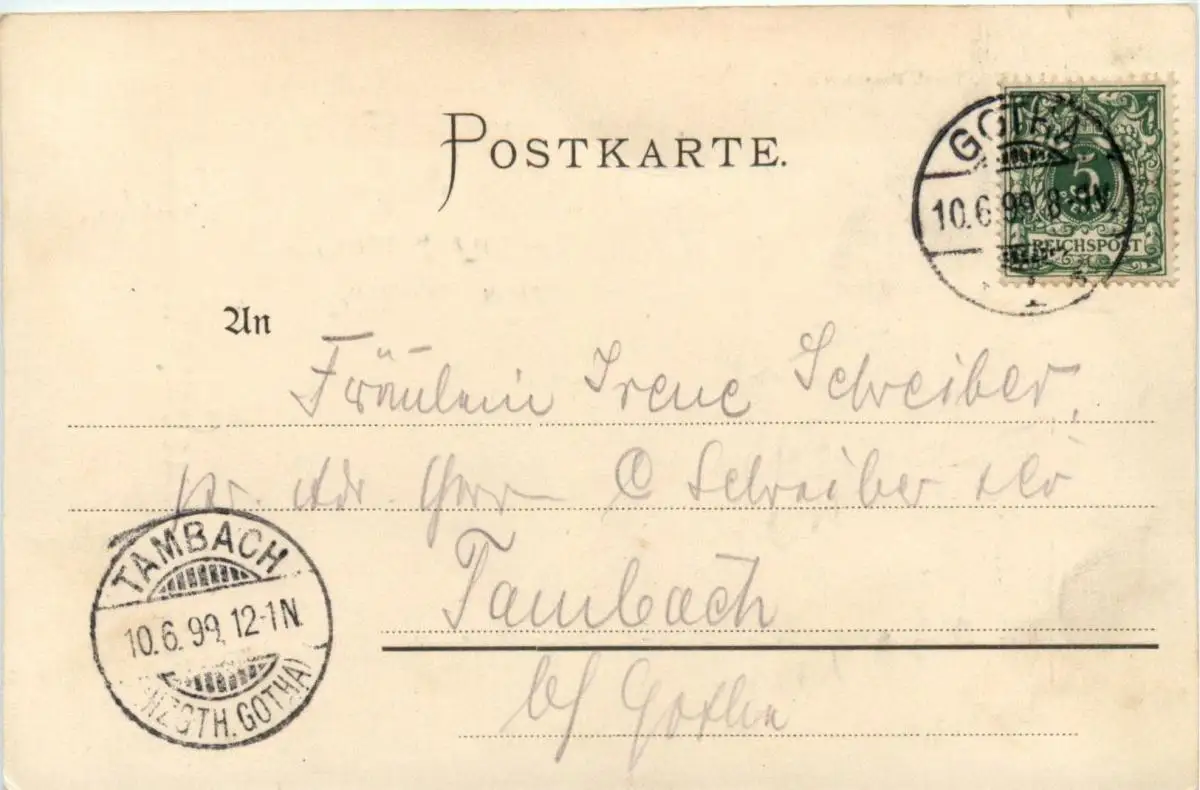 POSTKARTE.
GOTHA
10.6.99. 8-9N.
5
REICHSPOST
An
Fräulein Irene Schreiber,
pr. Adr. Herr C Schreiber
Tambach
b/ Gotha
TAMBACH
10.6.99. 12-1N.
(HZGTH. GOTHA)